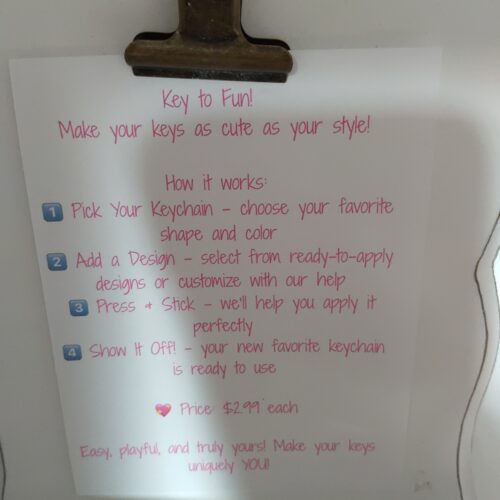 Key to Fun!
Make your keys as cute as your style!
How it works:
1️⃣ Pick Your Keychain - choose your favorite
shape and color
2️⃣ Add a Design - select from ready-to-apply
designs or customize with our help
3️⃣ Press + Stick - we'll help you apply it
perfectly
4️⃣ Show It Off! - your new favorite keychain
is ready to use
💖 Price: $2.99 each
Easy, playful, and truly yours! Make your keys
uniquely YOU!